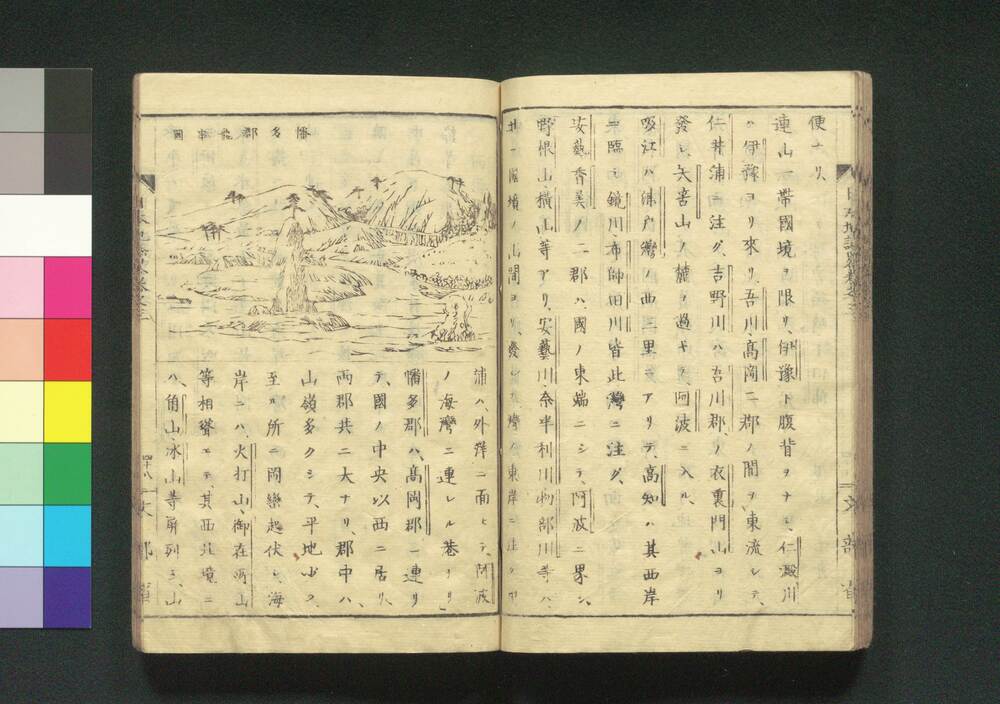 便ナリ、
連山一帶國境ヲ限リ、伊豫ト腹背ヲナス、仁澱川
ハ伊豫ヨリ來リ、吾川、高岡二郡ノ間ヲ東流シテ、
仁井浦ニ注グ、吉野川ハ吾川郡ノ衣裏門山ヨリ
發シ、矢筈山ノ麓ヲ過ギテ、阿波ニ入ル、
吸江ハ浦戸灣ノ西三里ニアリテ、高知ハ其西岸
ニ臨ミ、鏡川、布師田川皆此灣ニ注グ、
安藝香美ノ二郡ハ國ノ東端ニシテ、阿波ニ界シ、
野根山、横山等アリ、安藝川、奈半利川、物部川等ハ、
山間ヨリ發シ
幡多郡
浦ハ、外洋ニ面シテ、阿波
ノ海灣ニ連レル巷ナリ
幡多郡ハ、高岡郡ニ連リ
テ、國ノ中央以西ニ居リ、
兩郡共ニ大ナリ、郡中ハ、
山嶺多クシテ、平地少ク、
至ル所ニ岡巒起伏シ、海
岸ニハ、火打山、御在所山
等相聳エテ、其西北境ニ
ハ、角山、氷山等屏列ス、山
日本地誌略
四十八
文部省
文部省